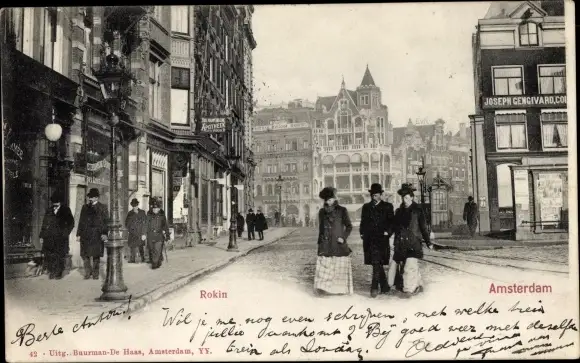 APOTHEEK
JOSEPH GENGIVARD, CO
Rokin
Amsterdam
Beste Antoni!
Wil je me nog even schrijven, met welke trein
jullie aankomt? Bij goed weer met dezelfde
trein als Zondag.
42 - Uitg. Buurman-De Haas, Amsterdam, YY.